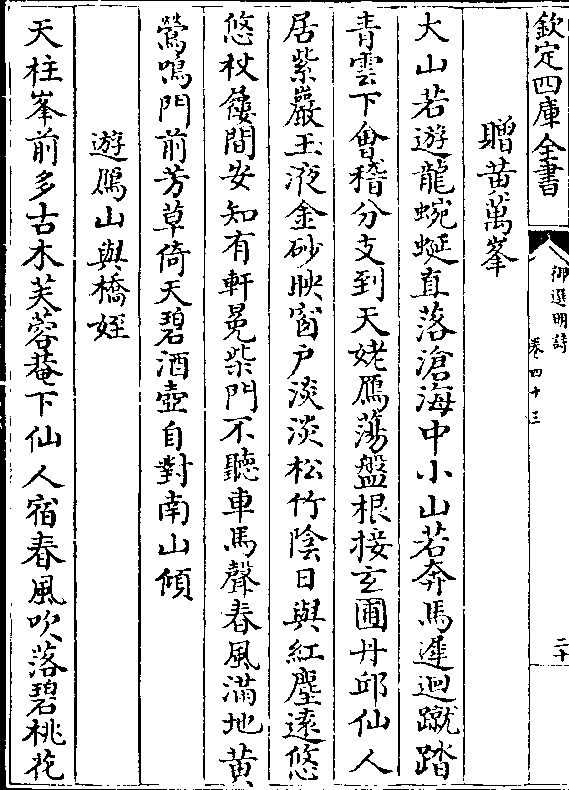 欽定四庫全書
御選明詩
卷四十三
二十
贈黃萬峯
大山若遊龍蜿蜒直落滄海中小山若奔馬遲迴蹴踏
青雲下會稽分支到天姥鴈蕩盤根接玄圃丹邱仙人
居紫巖玉液金砂映窗户淡淡松竹陰日與紅塵逺悠
悠杖屨間安知有軒冕柴門不聽車馬聲春風滿地黄
鶯鳴門前芳草倚天碧酒壺自對南山傾
遊鴈山與橋姪
天柱峯前多古木芙蓉菴下仙人宿春風吹落碧桃花